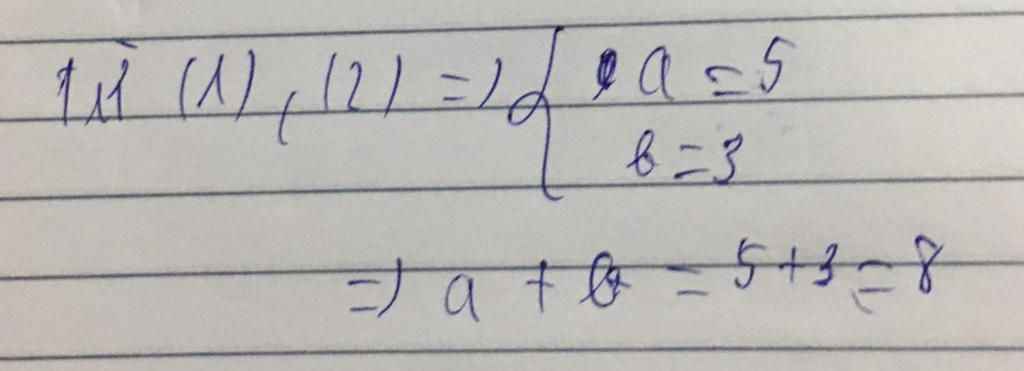 Từ (1), (2) => { a = 5
b = 3
=> a + b = 5 + 3 = 8